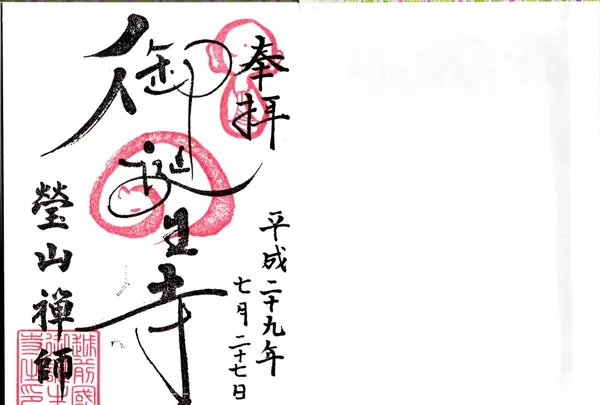 奉拝
御誕生寺
平成二十九年
七月二十七日
瑩山禅師
越前國